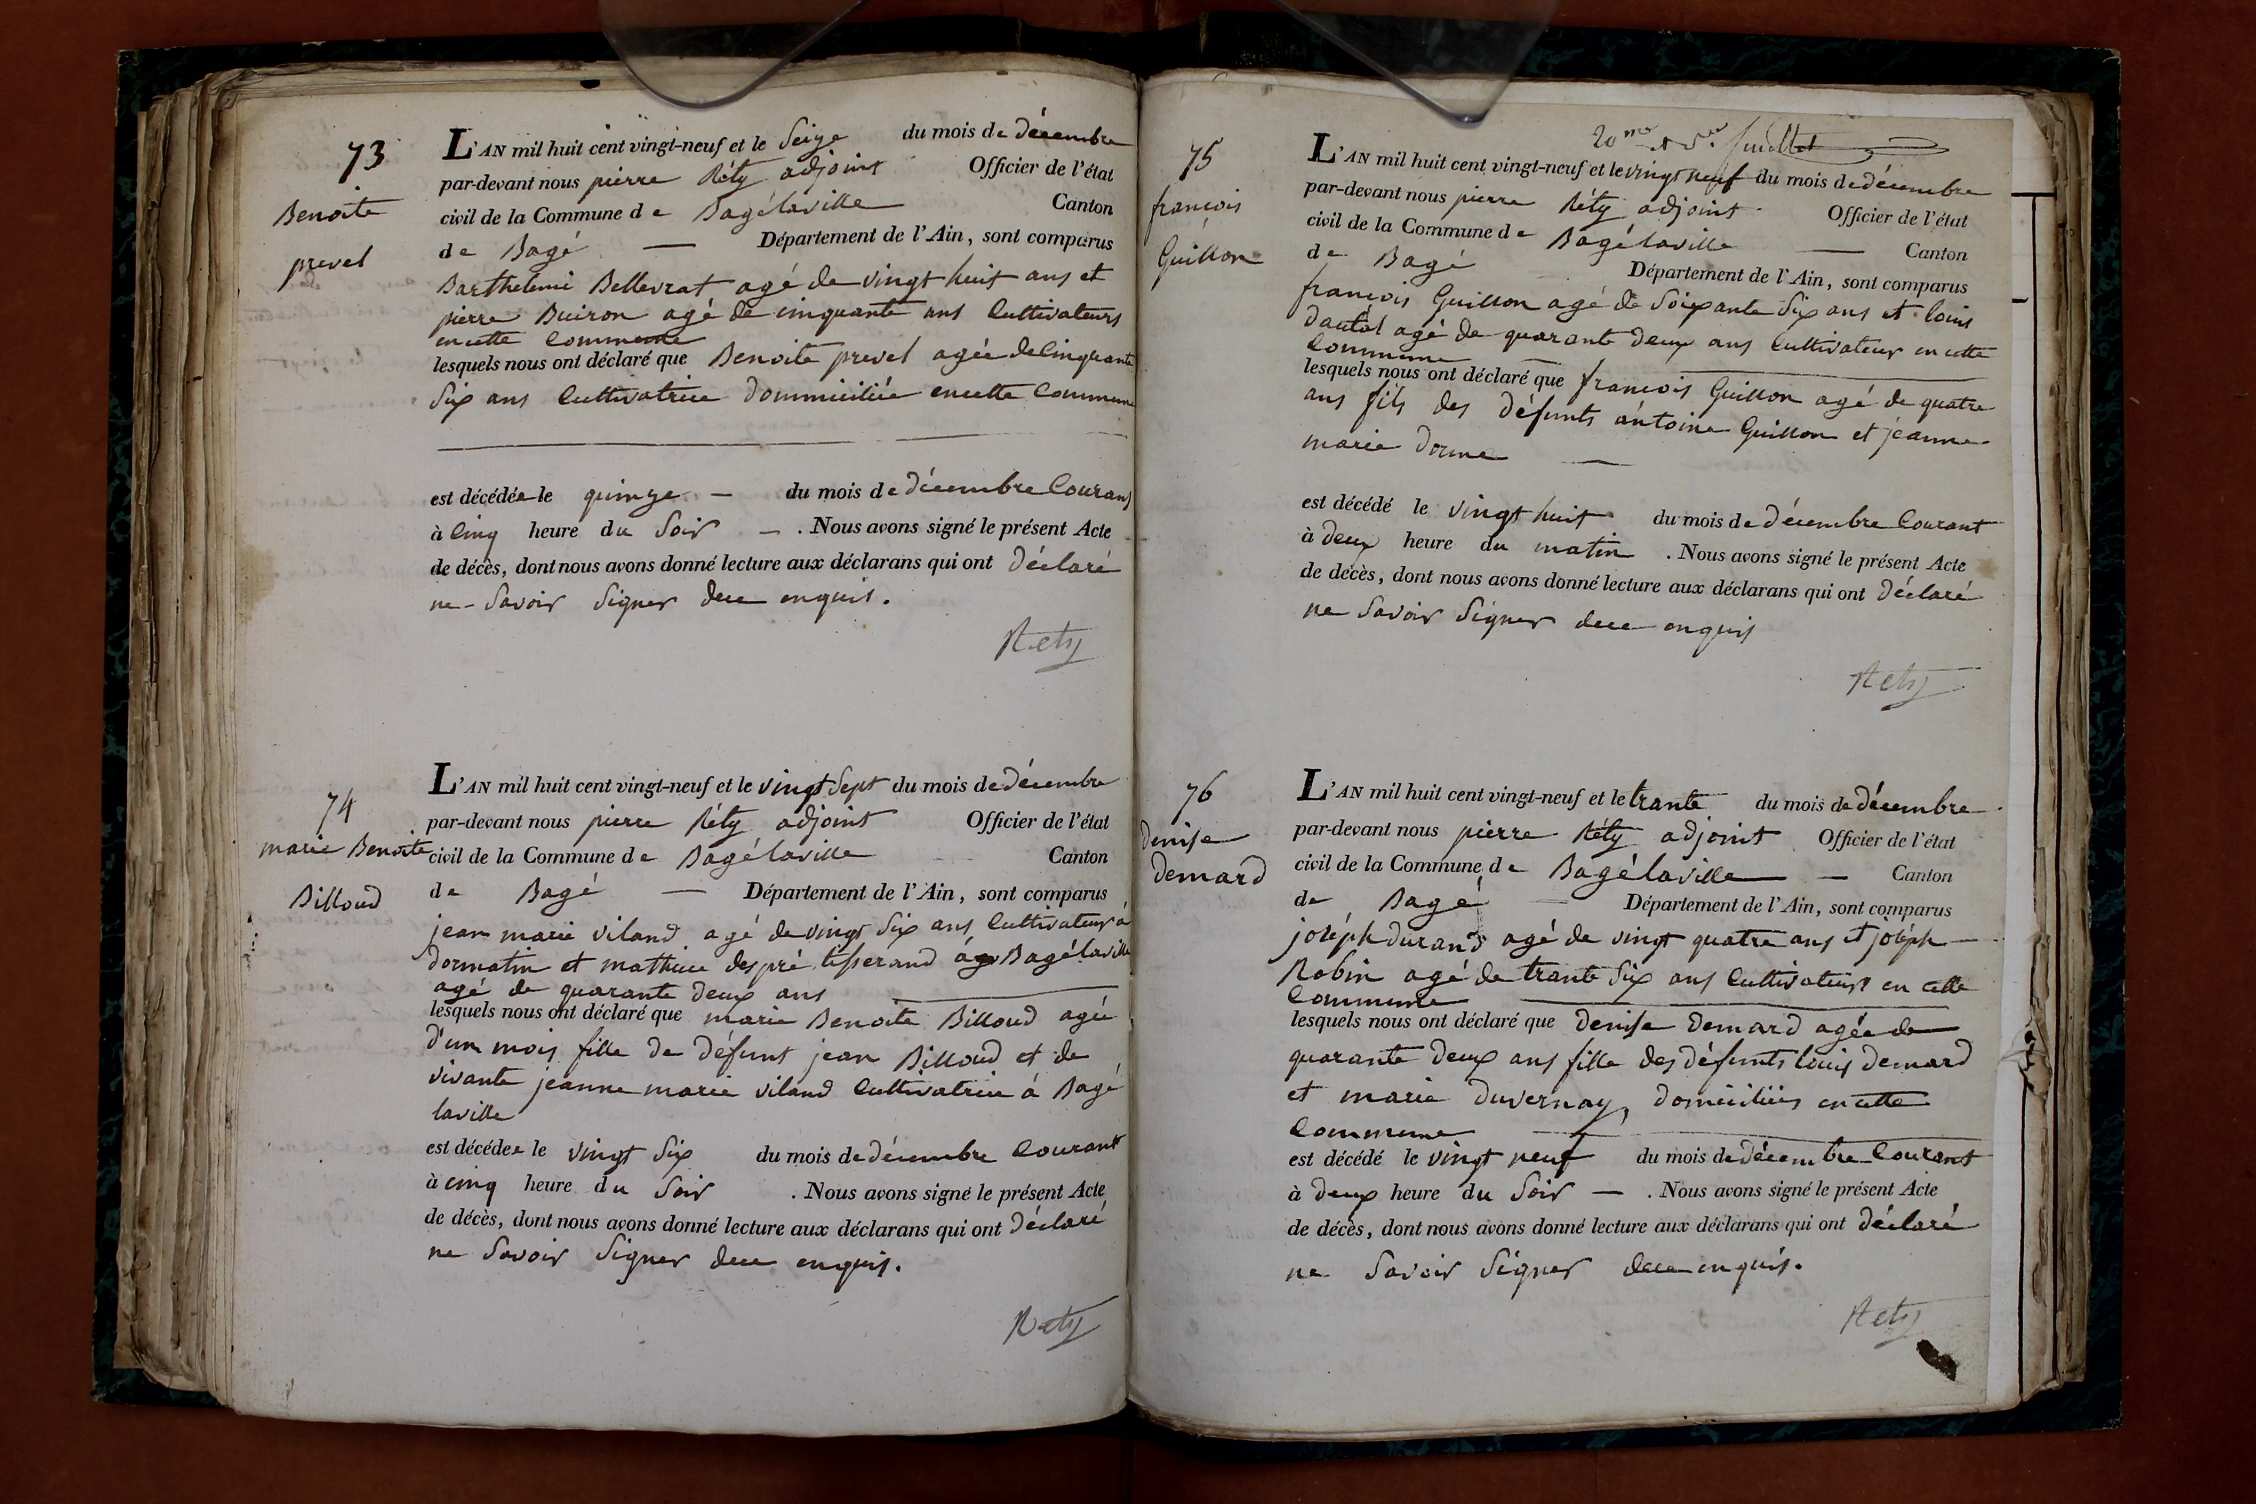 73
Benoite
prevel
L'AN mil huit cent vingt-neuf et le Seize du mois de décembre
par-devant nous pierre Réty adjoint Officier de l'état
civil de la Commune de Bagélaville Canton
de Bagé — Département de l'Ain, sont comparus
Barthelemi Bellevrat agé de vingt huit ans et
pierre Buiron agé de cinquante ans Cultivateurs
en cette Commune
lesquels nous ont déclaré que Benoite prevel agée de Cinquante
Six ans Cultivatrice dommiciliée en cette Commune
est décédée le quinze — du mois de décembre Courant
à Cinq heure du Soir — . Nous avons signé le présent Acte
de décès, dont nous avons donné lecture aux déclarans qui ont déclaré
ne Savoir Signer de ce enquis.
Réty
74
marie Benoite
Billoud
L'AN mil huit cent vingt-neuf et le vingt Sept du mois de décembre
par-devant nous pierre Réty adjoint Officier de l'état
civil de la Commune de Bagélaville Canton
de Bagé — Département de l'Ain, sont comparus
jean marie viland agé de vingt Six ans Cultivateur à
dormatin et mathieu despré tisserand à Bagélaville
agé de quarante deux ans
lesquels nous ont déclaré que marie Benoite Billoud agée
d'un mois fille de défunt jean Billoud et de
vivante jeanne marie viland Cultivatrice à Bagé
laville
est décédée le vingt Six du mois de décembre Courant
à cinq heure du Soir . Nous avons signé le présent Acte
de décès, dont nous avons donné lecture aux déclarans qui ont déclaré
ne Savoir Signer de ce enquis.
Réty
20me et feuillet
75
francois
Guillon
L'AN mil huit cent vingt-neuf et le vingt neuf du mois de décembre
par-devant nous pierre Réty adjoint Officier de l'état
civil de la Commune de Bagélaville — Canton
de Bagé Département de l'Ain, sont comparus
francois Guillon agé de Soixante Six ans et louis
dautel agé de quarante deux ans Cultivateur en cette
Commune
lesquels nous ont déclaré que francois Guillon agé de quatre
ans fils des défunts antoine Guillon et jeanne
marie dorme —
est décédé le vingt huit du mois de décembre Courant
à deux heure du matin . Nous avons signé le présent Acte
de décès, dont nous avons donné lecture aux déclarans qui ont déclaré
ne Savoir Signer de ce enquis
Réty
76
denise
demard
L'AN mil huit cent vingt-neuf et le trante du mois de décembre
par-devant nous pierre Réty adjoint Officier de l'état
civil de la Commune de Bagélaville — Canton
de Bagé Département de l'Ain, sont comparus
joséph durand agé de vingt quatre ans et joséph
Robin agé de trante Six ans Cultivateurs en cette
Commune
lesquels nous ont déclaré que denise demard agée de
quarante deux ans fille des défunts louis demard
et marie duvernay, domiciliés en cette
Commune
est décédé le vingt neuf du mois de décembre Courant
à deux heure du Soir — . Nous avons signé le présent Acte
de décès, dont nous avons donné lecture aux déclarans qui ont déclaré
ne Savoir Signer de ce enquis.
Réty